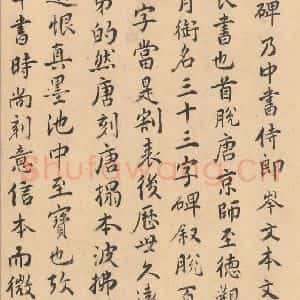 碑乃中書侍郎岑文本文
書也首脫唐京師至德觀
月銜名三十三字碑敘脫百
字當是割表後歷世久遠
弟的然唐刻唐搨本波拂
恨真墨池中至寶也玅
書時尚刻意信本而微
Shufawang.cn